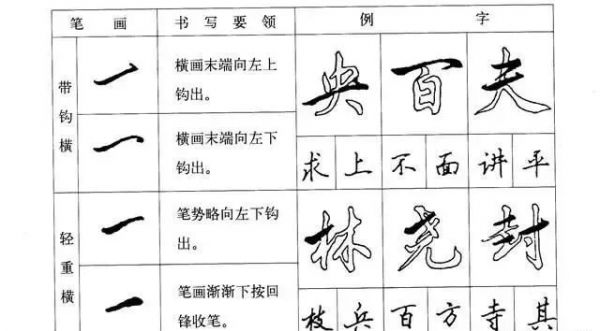 笔画 书写要领 例字
带钩横
横画末端向左上
钩出。
横画末端向左下
钩出。
央百夫
求上不面讲平
轻重横
笔势略向左下钩
出。
笔画渐渐下按回
锋收笔。
林尧封
枝兵百方寺其